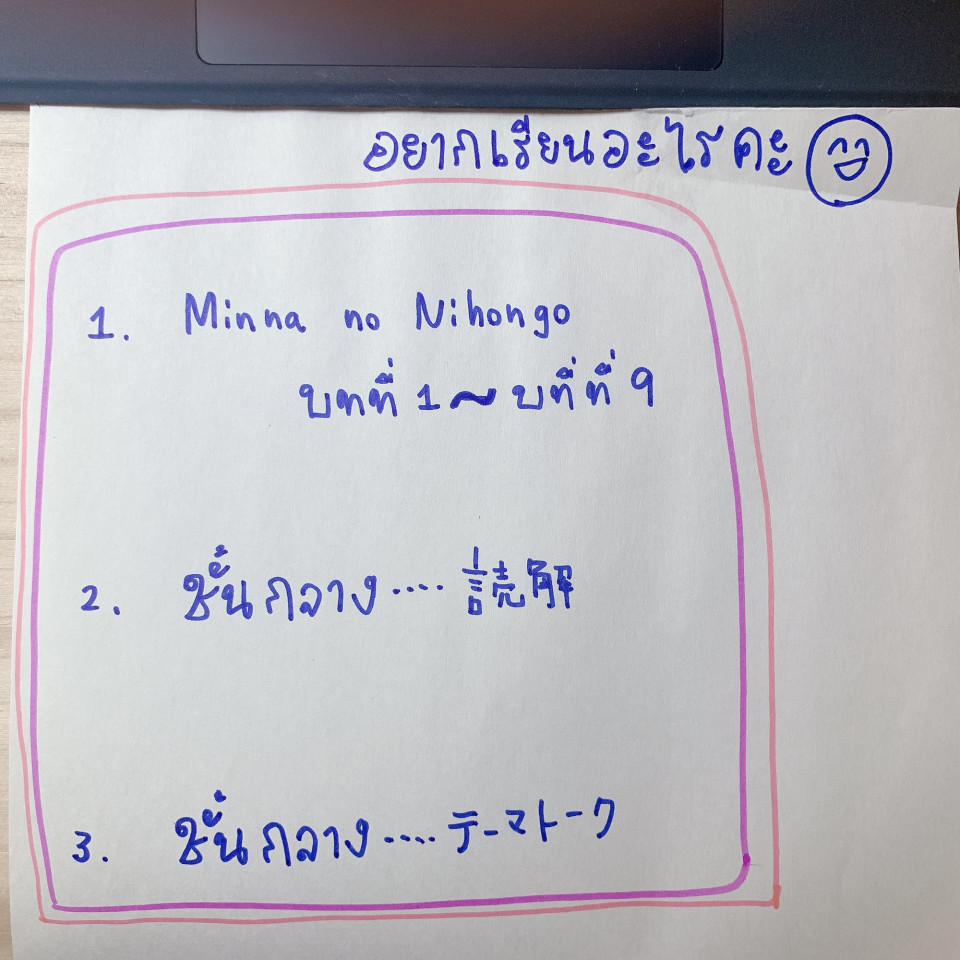 อยากเรียนอะไรคะ
1. Minna no Nihongo
บทที่ 1~บที่ที่ 9
2. ชั้นกลาง.... 読解
3. ชั้นกลาง.... テーマトーク